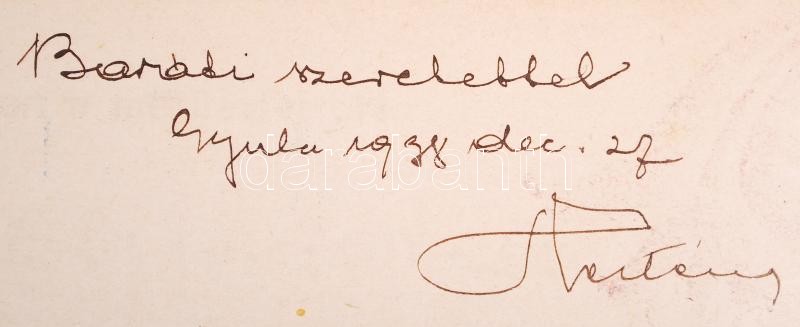 Baráti szeretettel
Gyula 1938 dec. 27
darabanth